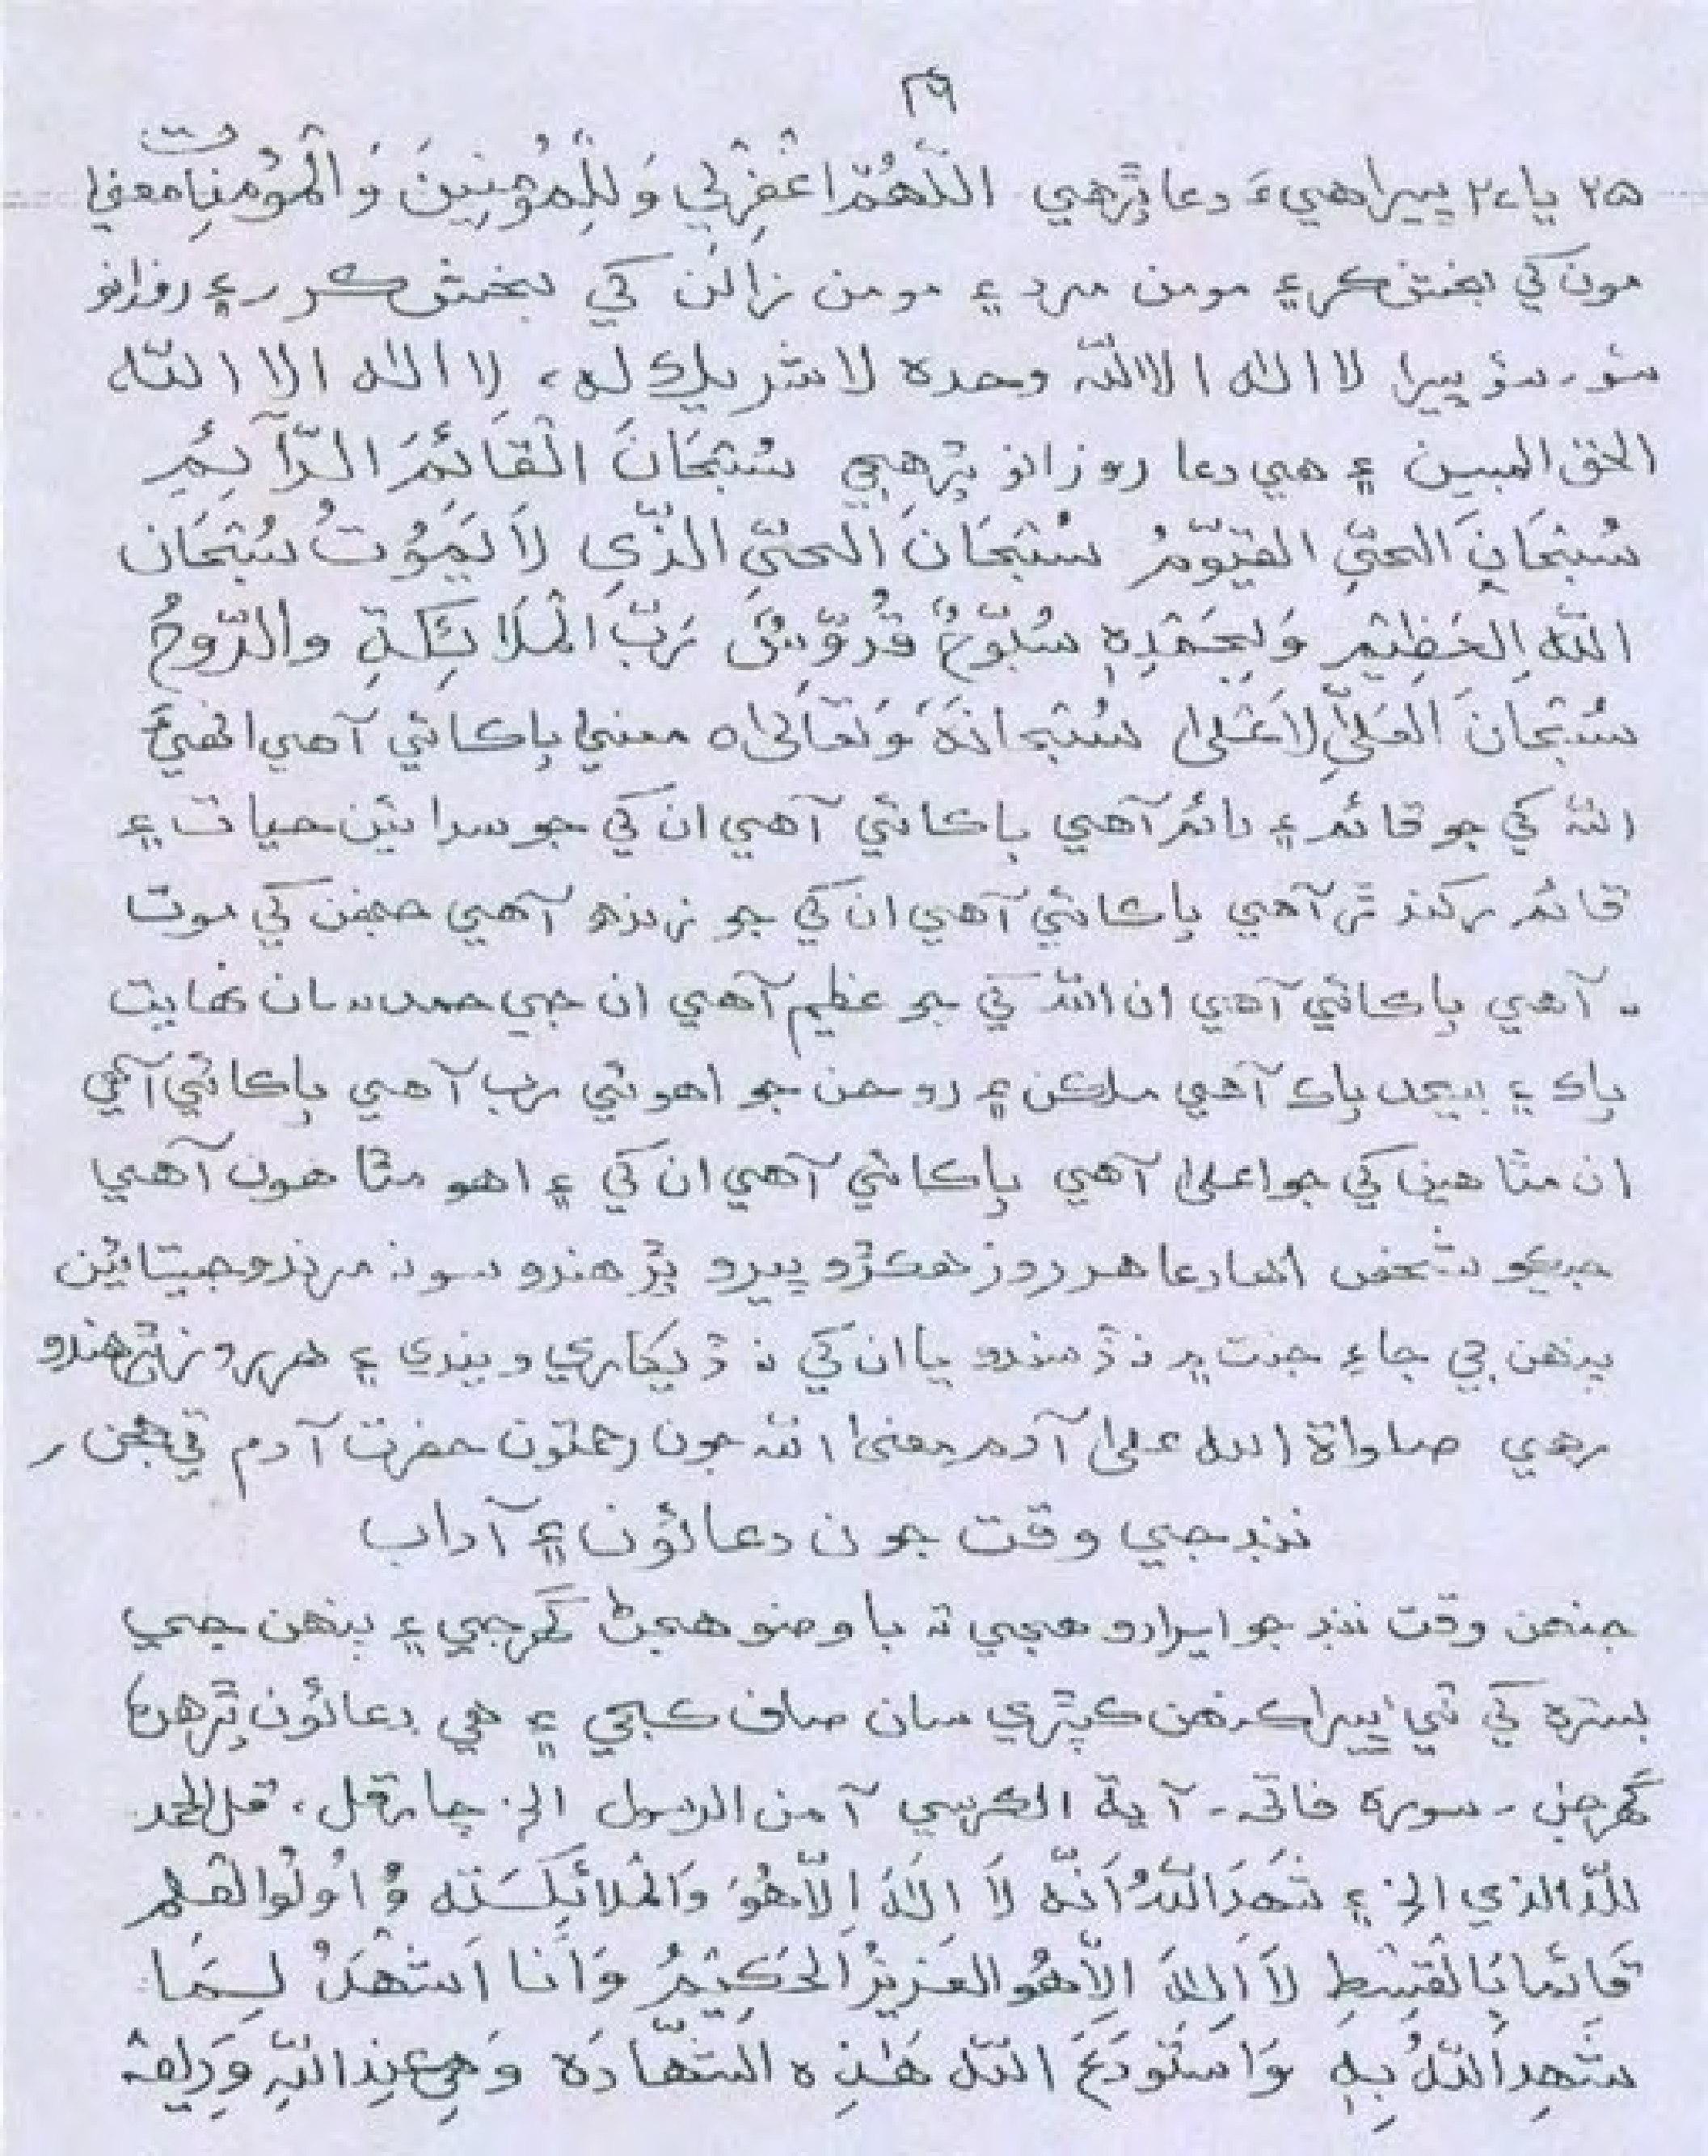 ٢٩
٢٥ يا ٢٧ ڀيرا هيءَ دعا پڙهي اَللّٰهُمَّ اغْفِرْلِي وَلِلْمُؤمِنِينَ وَالْمُؤمِنِاتِ معنيٰ
مون کي بخش ڪر ۽ مومن مرد ۽ مومن زالن کي بخش ڪر ۽ روزانو
سؤ۔ سؤ ڀيرا لا الٰه الا اللّٰه وحده لا شريڪ له، لا الٰه الا اللّٰه
الحق المبين ۽ هي دعا روزانو پڙهجي سُبْحَانَ الْقَائِمَ الدَّآئِمُ
سُبْحَانَ الحَيِّ القَيُّوْمُ سُبْحَانَ الحَيِّ الذِّي لاَ يَمُوْتُ سُبْحَان
اللّٰهِ العَظِيْمِ وَبِحَمْدِهٖ سُبُّوْحٌ قُدُّوْسٌ رَبُّ الْمَلَائِكَةِ والرُّوحُ
سُبْحَانَ العَلِيِّ لاَعْلىٰ سُبْحَانَهٗ وَتَعَالىٰ٥ معنيٰ پاڪائي آهي انهيءَ
اللّٰه کي جو قائم ۽ دائم آهي پاڪائي آهي ان کي جو سدائين حيات ۽
قائم رکندڙ آهي پاڪائي آهي ان کي جو زنده آهي جنهن کي موت
نه آهي پاڪائي آهي ان اللّٰه کي جو عظيم آهي ان جي حمد سان نهايت
پاڪ ۽ بيحد پاڪ آهي ملڪن ۽ روحن جو اهوئي رب آهي پاڪائي آهي
ان مٿاهين کي جو اعليٰ آهي پاڪائي آهي ان کي ۽ اهو مٿاهون آهي
جيڪو شخص اها دعا هر روز هڪڙو ڀيرو پڙهندو سو نه مرندو جيستائين
پنهن جي جاءِ جنت ۾ نه ڏسندو يا ان کي نه ڏيکاري ويندي ۽ هر روز پڙهندو
رهي صلواة اللّٰه علىٰ آدم معنيٰ اللّٰه جون رحمتون حضرت آدم تي هجن
ننڊ جي وقت جون دعائون ۽ آداب
جنهن وقت ننڊ جو ايرادو هجي ته باوضو هجڻ گهرجي ۽ پنهن جي
بستره کي ٽي ڀيرا ڪنهن ڪپڙي سان صاف ڪجي ۽ هي دعائون پڙهڻ
گهرجن ۔ سورة فاتحه ۔ آية الڪرسي آمن الرسول الخ چار قل، قل الحمد
للّٰه الذي الخ ۽ شَهَدَاللّٰهُ اَنَّه لاَ اِلٰهَ اِلاَّ هُوَ وَالْمَلائِكَتَه وُاُولُوالْعِلم
قَائِما بَالْقِسْطِ لاَ اِلٰهَ اِلاَّ هُوالعَزِيْزُالحَكِيْمُ وَاَنا اَشْهَدُ لِمَا
شَهِدَاللّٰهُ بِهٖ وَاسْتَوْدَعَ اللّٰه هٰذِه الشَّهَادَه وَهِيَ عِنِداللّٰهِ وَدِيعَه